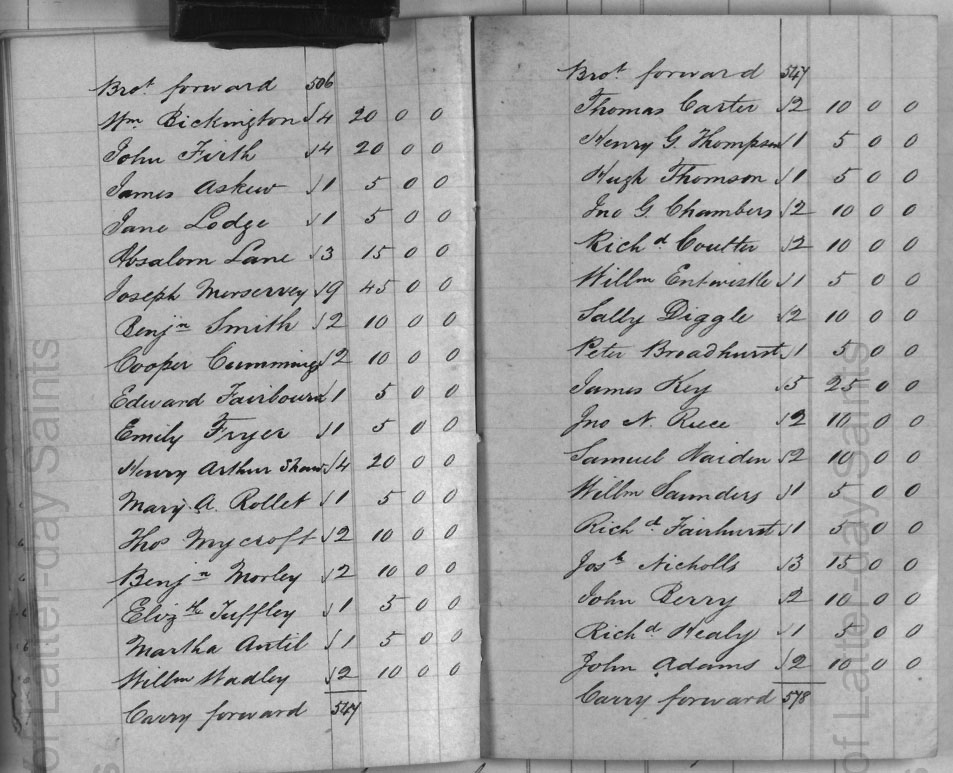 Brot forward 506
Wm Bickington √4 20 0 0
John Firth √4 20 0 0
James Askew √1 5 0 0
Jane Lodge √1 5 0 0
Absalom Lane √3 15 0 0
Joseph Merservey √9 45 0 0
Benjn Smith √2 10 0 0
Cooper Cummings √2 10 0 0
Edward Fairbourn √1 5 0 0
Emily Fryer √1 5 0 0
Henry Arthur Shaw √4 20 0 0
Mary A. Rollet √1 5 0 0
Thos Mycroft √2 10 0 0
Benjn Morley √2 10 0 0
Elizth Tuffley √1 5 0 0
Martha Antil √1 5 0 0
Willm Wadley √2 10 0 0
Carry forward 547
Brot forward 547
Thomas Carter √2 10 0 0
Henry G. Thompson √1 5 0 0
Hugh Thomson √1 5 0 0
Jno G. Chambers √2 10 0 0
Richd Coulter √2 10 0 0
Willm Entwistle √1 5 0 0
Sally Diggle √2 10 0 0
Peter Broadhurst √1 5 0 0
James Key √5 25 0 0
Jno N. Reece √2 10 0 0
Samuel Naiden √2 10 0 0
Willm Saunders √1 5 0 0
Richd Fairhurst √1 5 0 0
Josh Nicholls √3 15 0 0
John Berry √2 10 0 0
Richd Healy √1 5 0 0
John Adams √2 10 0 0
Carry forward 578
of Latter-day Saints
of Latter-day Saints